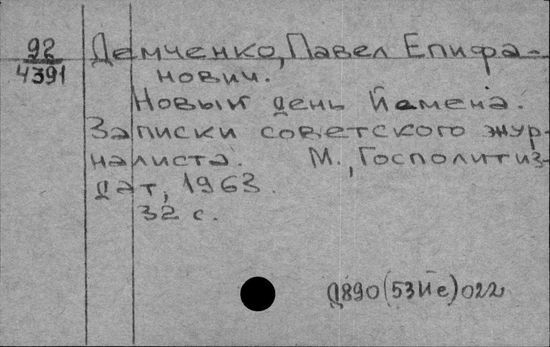 92
4391
Демченко, Павел Епифа-
нович.
Новый день Йемена.
Записки советского жур-
налиста. М., Госполитиз-
дат, 1963.
32 с.
Д890(53Йе)022